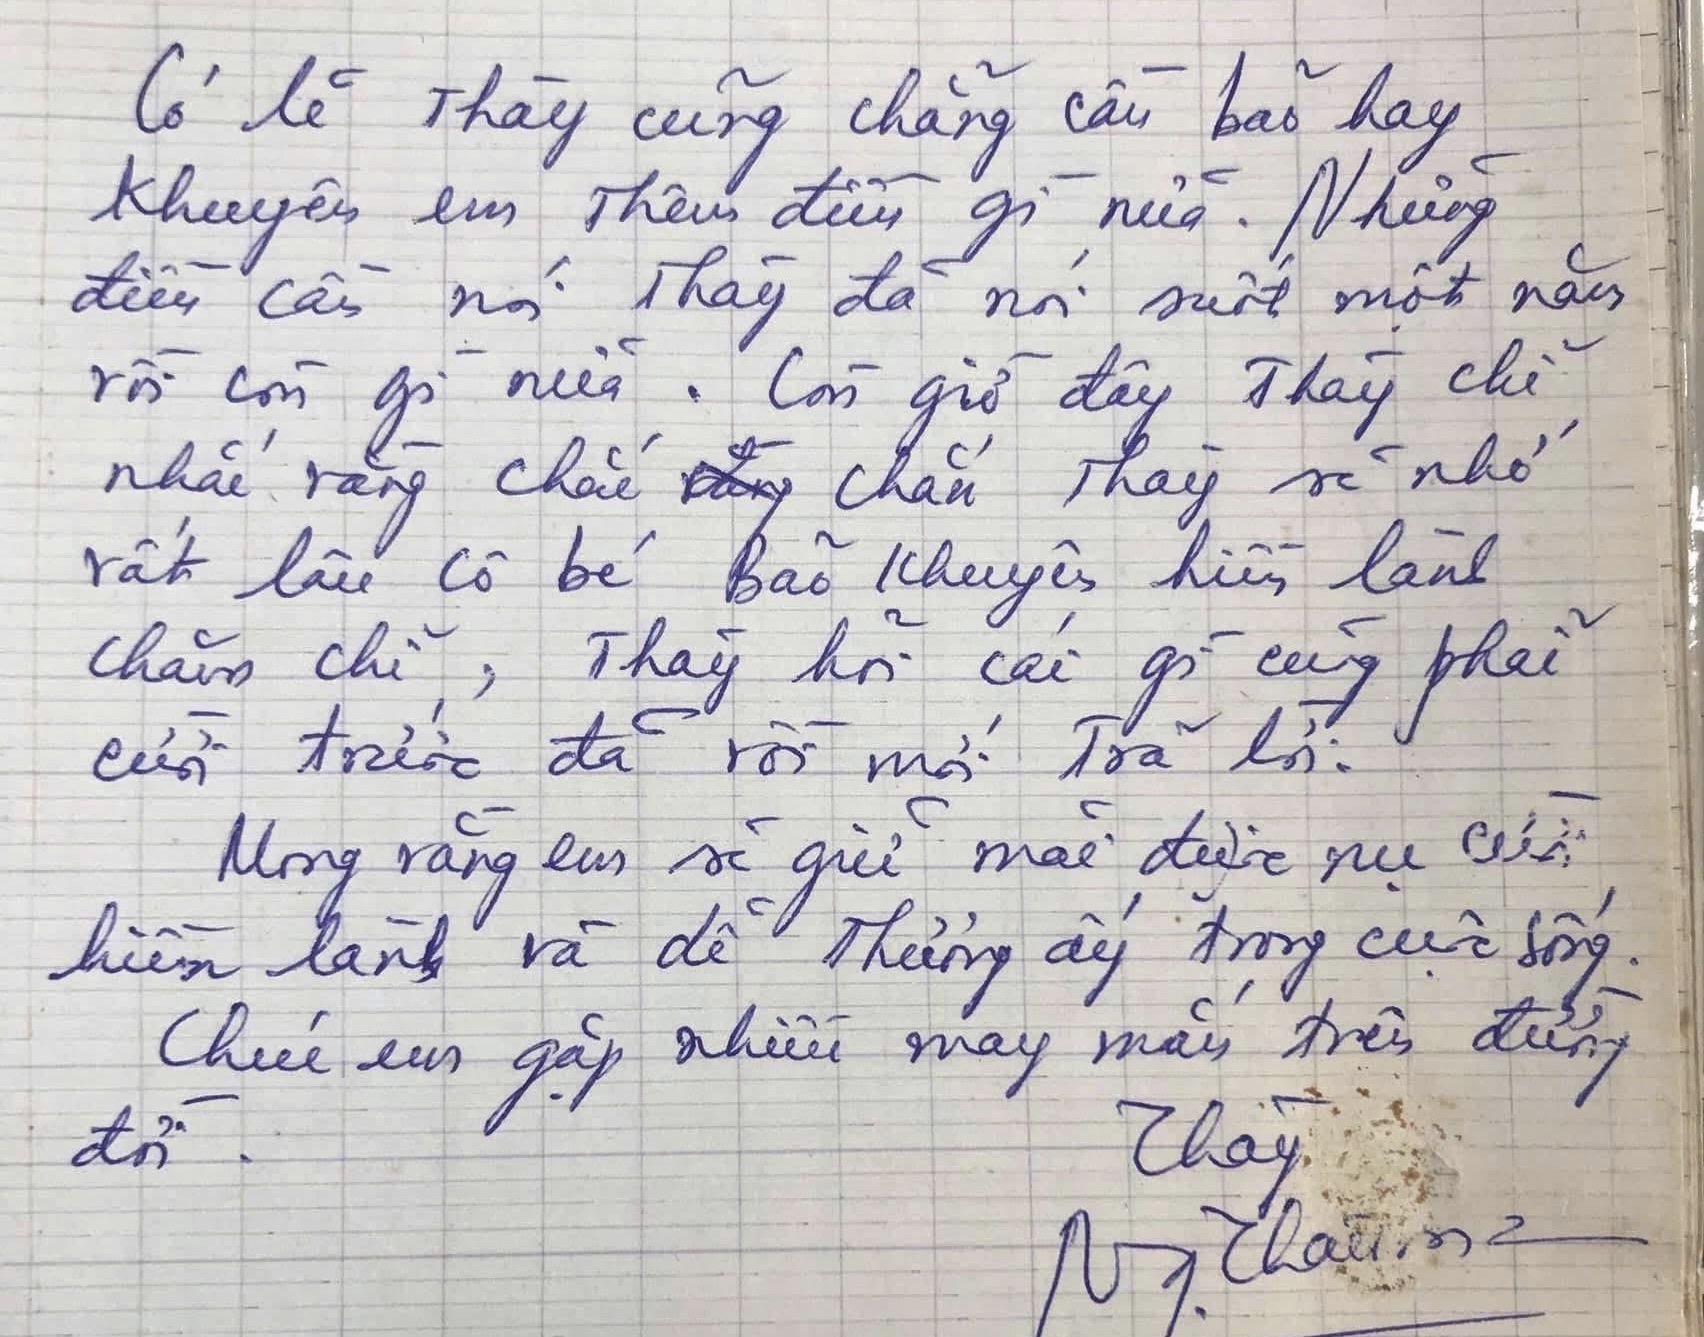 Có lẽ Thầy cũng chẳng cần bảo hay
khuyên em thêm điều gì nữa. Những
điều cần nói Thầy đã nói suốt một năm
rồi còn gì nữa. Còn giờ đây Thầy chỉ
nhắc rằng chắc chắn Thầy sẽ nhớ
rất lâu cô bé Bảo Khuyên hiền lành
chăm chỉ, Thầy hỏi cái gì cũng phải
cười trước đã rồi mới trả lời.
Mong rằng em sẽ giữ mãi được nụ cười
hiền lành và dễ thương ấy trong cuộc sống.
Chúc em gặp nhiều may mắn trên đường
đời.
Thầy